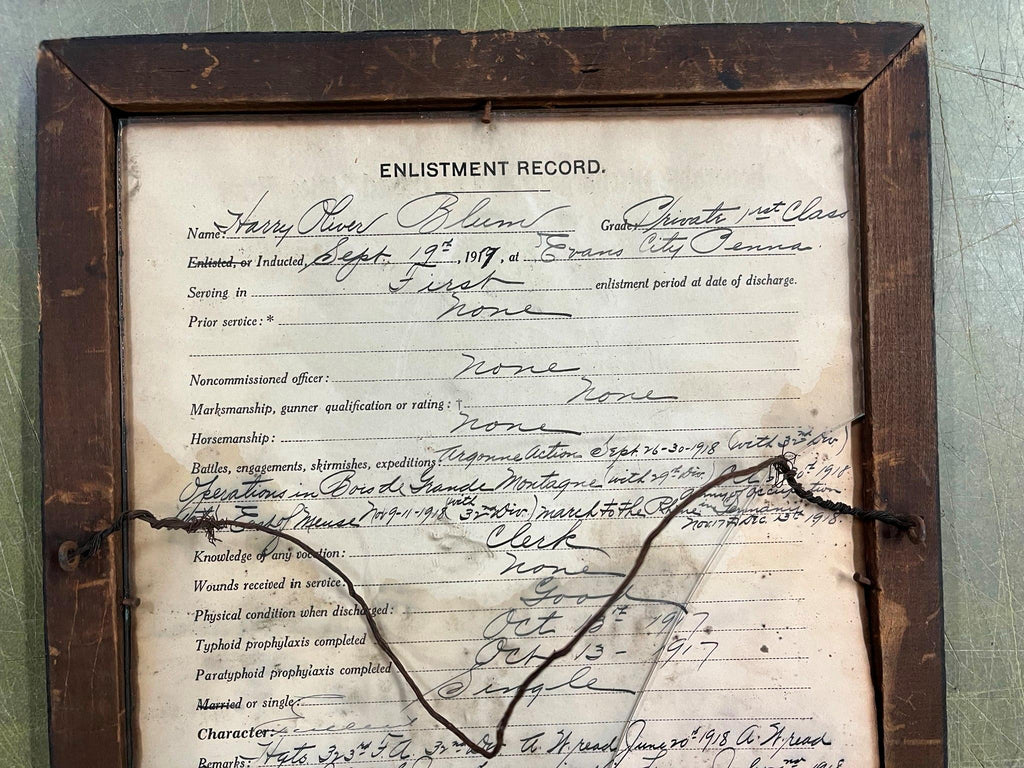 ENLISTMENT RECORD.
Name: Harry Oliver Blum Grade: Private 1rst Class
Enlisted, or Inducted, Sept. 19th, 1917, at Evans City Penna.
Serving in First enlistment period at date of discharge.
Prior service:* None
Noncommissioned officer: None
Marksmanship, gunner qualification or rating:† None
Horsemanship: None
Battles, engagements, skirmishes, expeditions: Argonne Action Sept 26-30-1918 (with 32nd Div)
Operations in Bois de Grande Montagne with 29th Div. 1918
East of Meuse Nov 9-11-1918 with 32nd Div) march to the Rhine Army of Occupation
Nov 17th Dec 13th 1918.
Knowledge of any vocation: Clerk
Wounds received in service: None
Physical condition when discharged: Good
Typhoid prophylaxis completed Oct 13th 1917
Paratyphoid prophylaxis completed Oct 13- 1917
Married or single: Single
Character:
Remarks: Hqts 323rd F.A. 32nd Div A.W. read June 20th 1918 A.W. read